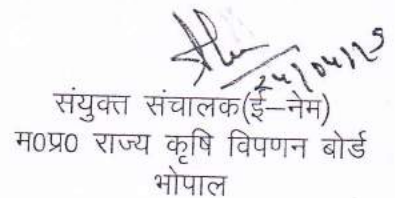 24/04/25
संयुक्त संचालक(ई–नेम)
म0प्र0 राज्य कृषि विपणन बोर्ड
भोपाल